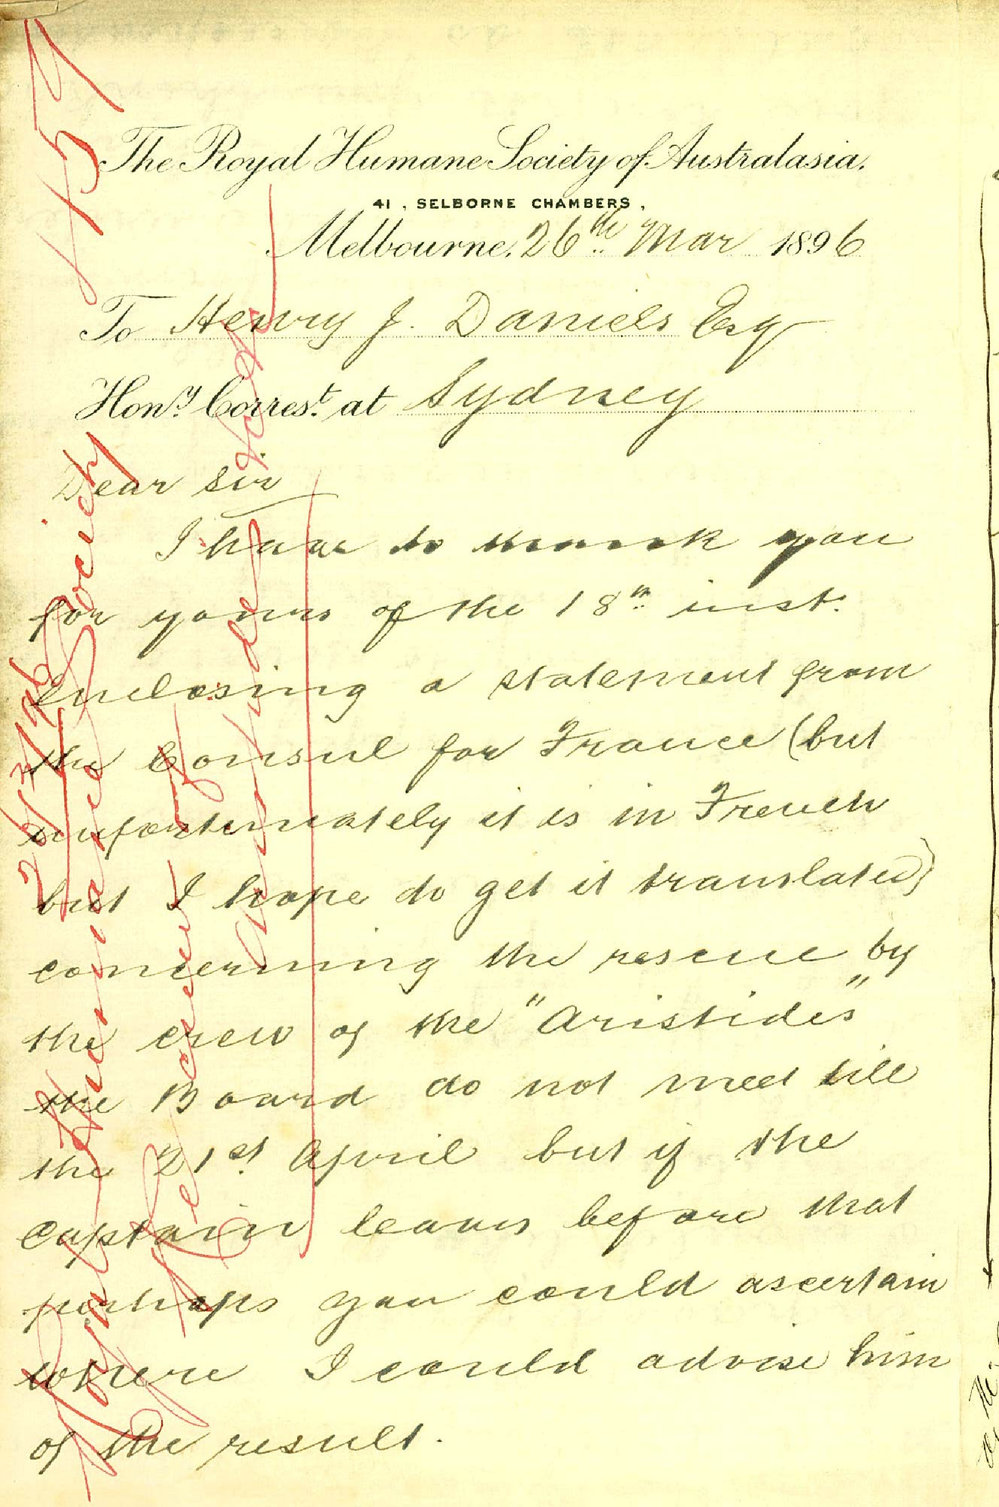 The Royal Humane Society of Australasia.
41, SELBORNE CHAMBERS,
Melbourne, 26th Mar 1896
To Henry J. Daniels Esq
Hony. Correst. at Sydney
Dear Sir
I have to thank you
for yours of the 18th inst.
enclosing a statement from
the Consul for France (but
unfortunately it is in French
but I hope to get it translated)
concerning the rescue by
the crew of the "Aristides"
the Board do not meet till
the 21st April but if the
captain leaves before that
perhaps you could ascertain
where I could advise him
of the result.
457
Royal Humane Society
26/3/96
Rescue of